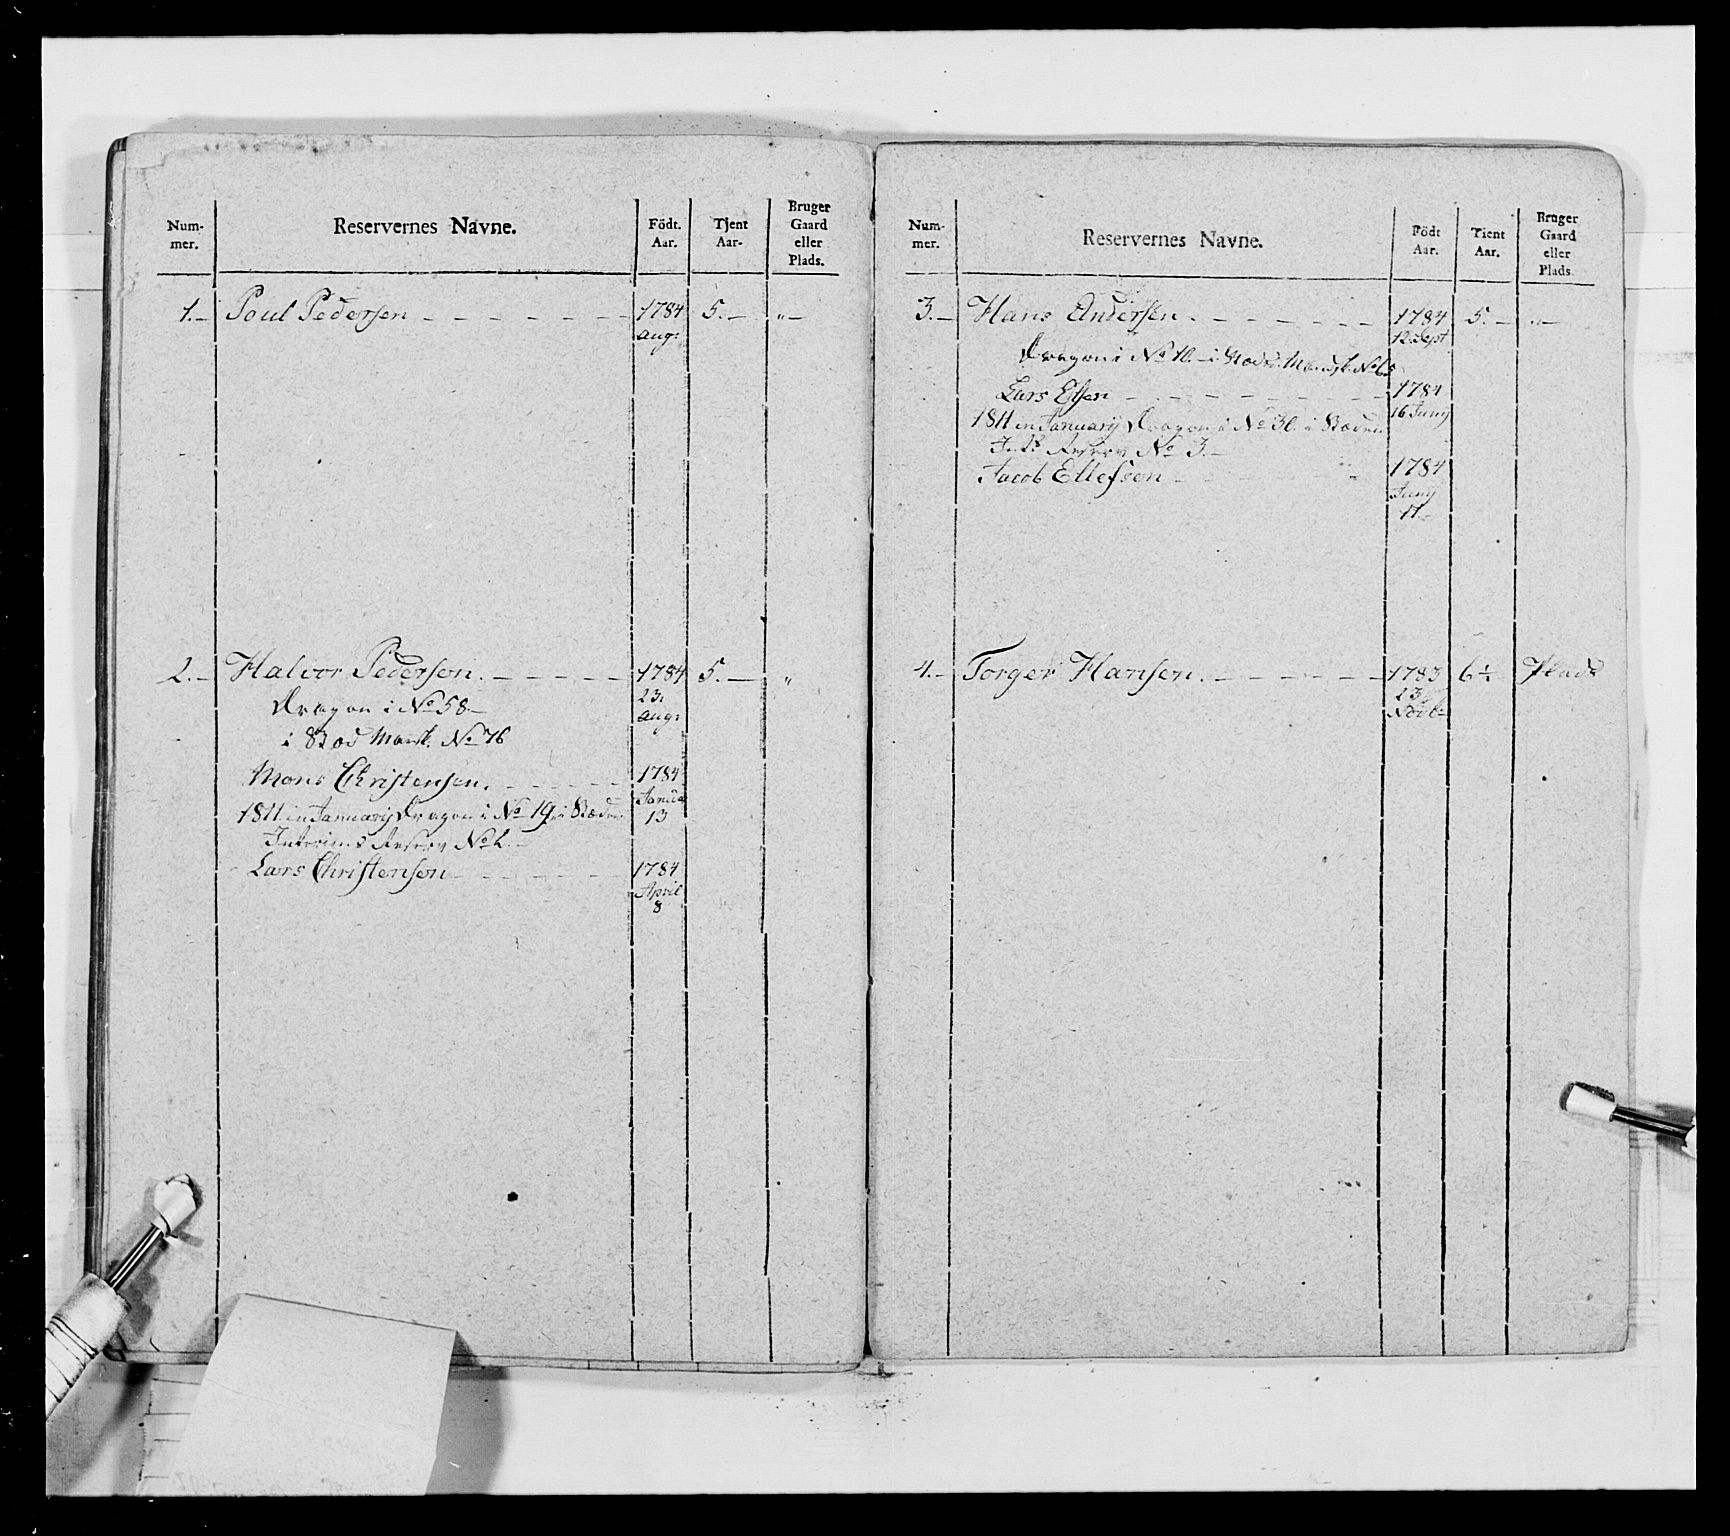 Num-
mer.
Reservernes Navne.
Födt.
Aar.
Tjent
Aar.
Bruger
Gaard
eller
Plads.
1.– Poul Pedersen – – – – – – – 1784 5.– „–
Aug:
2.– Halvor Pedersen. – – – – – 1784 5.– „
Dragon i No 58.–
23.
Aug:
i Stod Mansk. No 76
Mons Christensen. – – – – – 1784
Janua
1811 in January Dragon i No 19. i Stæden
13
Interims Reserv No 2.–
Lars Christensen – – – – – 1784
April
8
Num-
mer.
Reservernes Navne.
Födt
Aar.
Tient
Aar.
Bruger
Gaard
eller
Plads.
3.– Hans Andersen. – – – – – 1784 5.– „–
12 Sept
Dragon i No 10.– i Mandsk. No 65
Lars Elsen – – – – – – 1784
16 Juny
1811 in January Dragon i No 30. i Stæden
Reserv No 3.–
Jacob Ellefsen – – – 1784
Juny
17.–
4.– Torger Hansen. – – – – – 1783 6½ Plads
23
Novb: